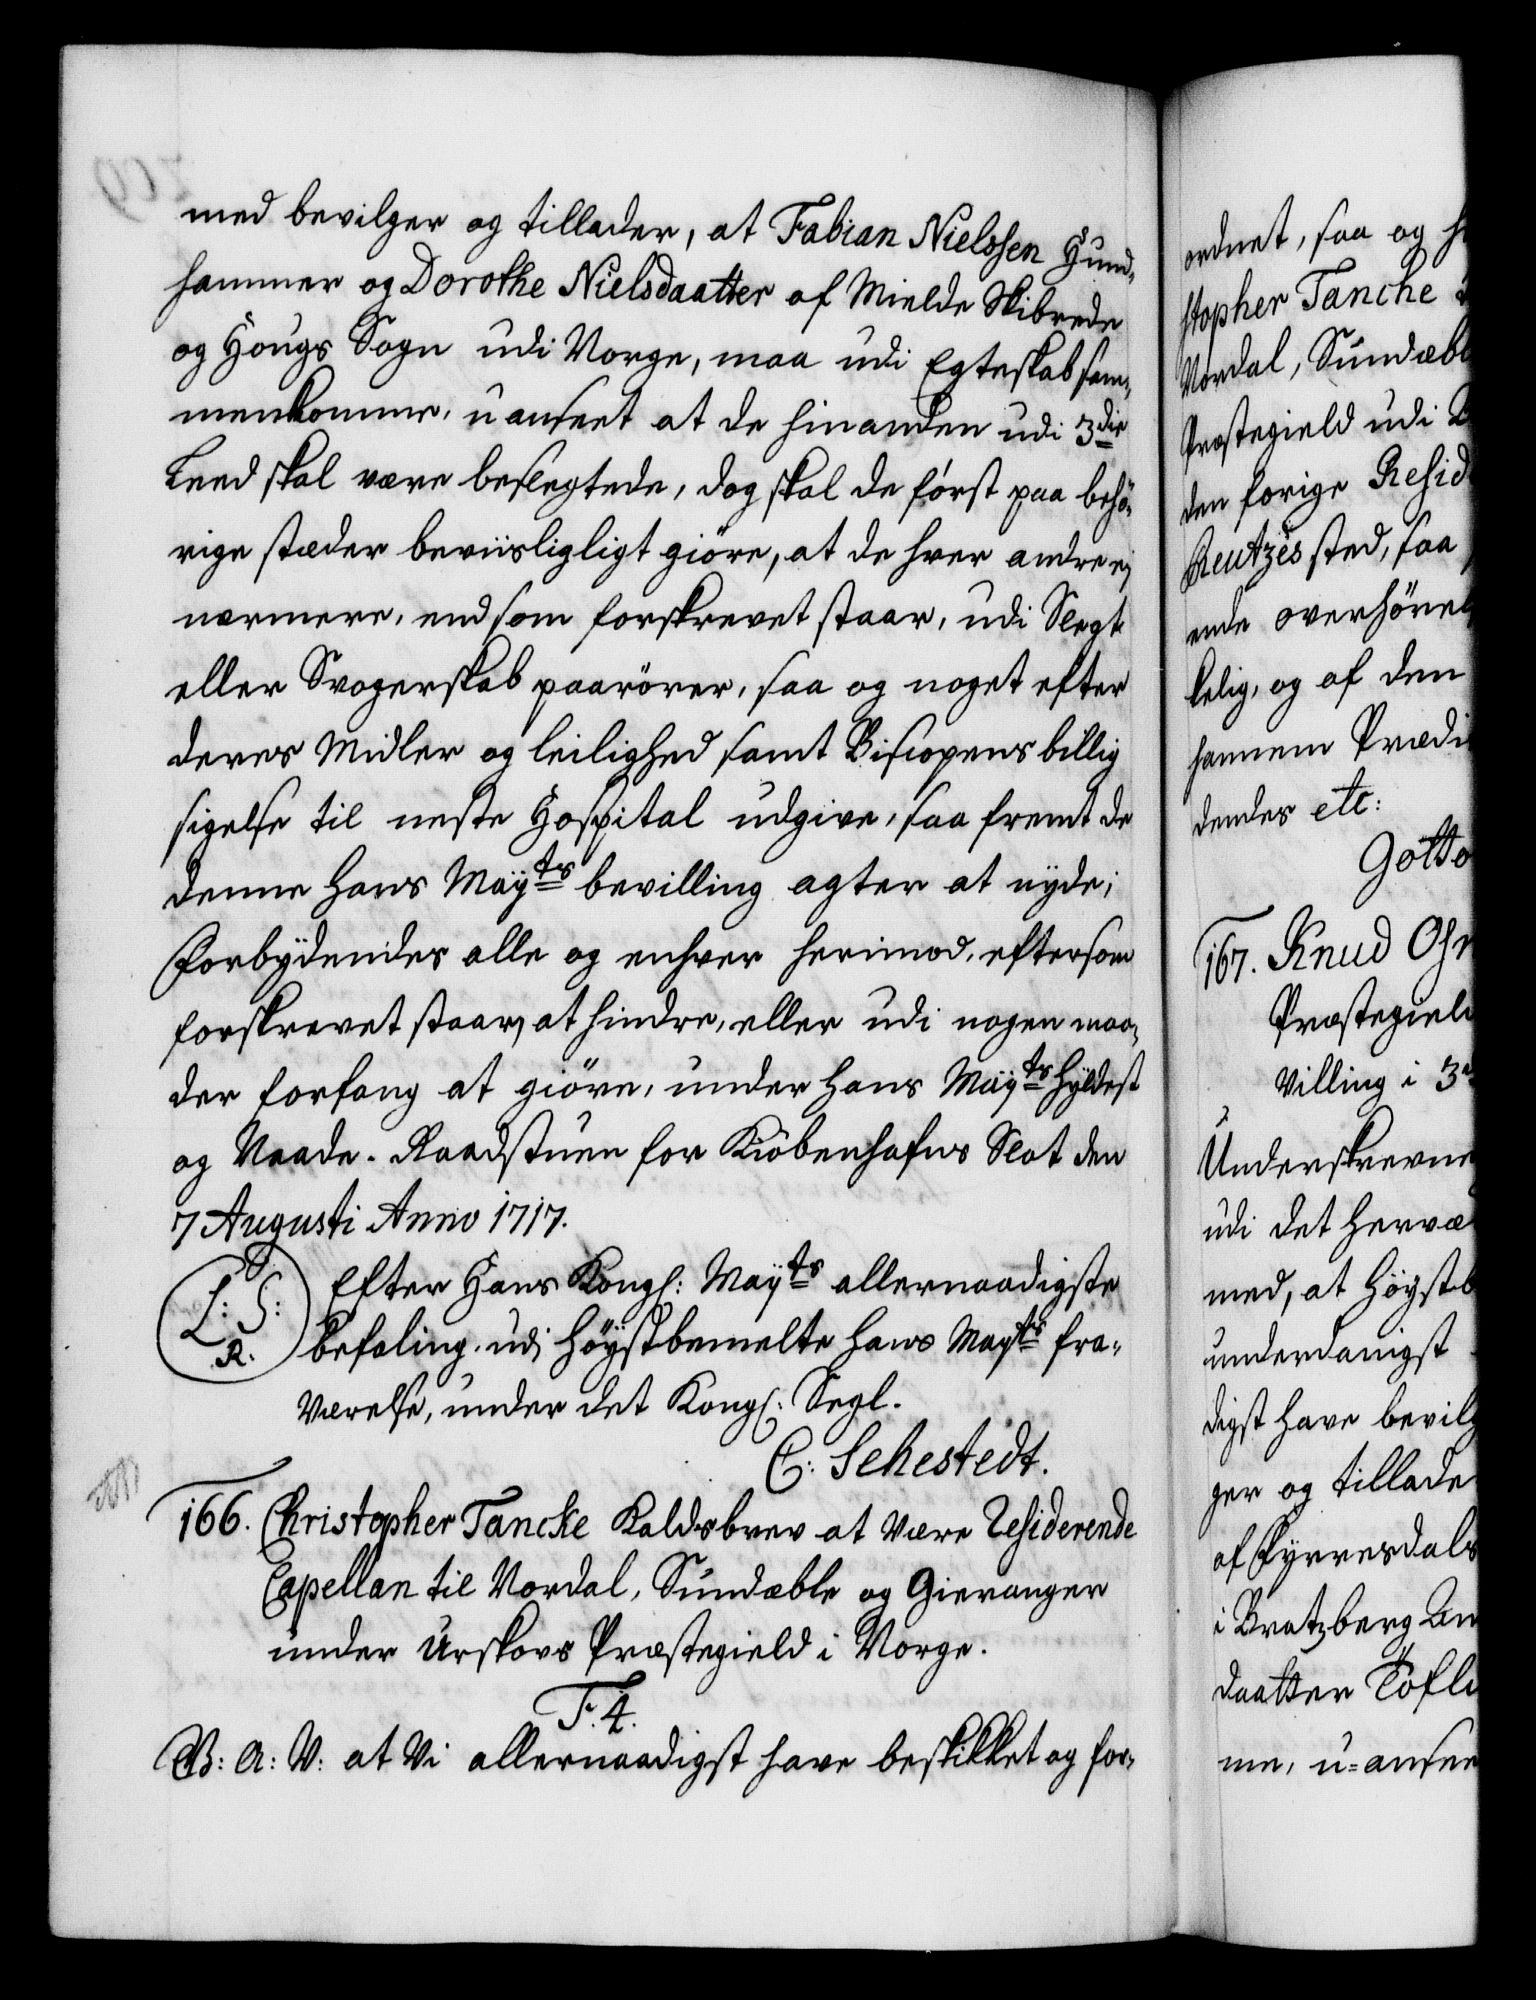 med bevilger og tillader, at Fabian Nielssen Hund-
hammer og Dorothe Nielsdaatter af Mielde Skibrede
og Hougs Sogn udi Norge, maa udi Egteskab sam-
menkomme, uanseet at de hinanden udi 3die
Leed skal være beslegtede, dog skal de først paa behö-
rige stæder beviisligligt giöre, at de hver andre ej
nærmere, end som forskrevet staar, udi Slegt
eller Svogerskab paarörer, saa og noget efter
deres Midler og leilighed samt Biscopens billig
sigelse til neste Hospital udgive, saa fremt de
denne Hans Mayts bevilling agter at nyde;
Forbydendes alle og enhver herimod, eftersom
forskrevet staar, at hindre, eller udi nogen maa-
der forfang at giöre, under Hans Mayts Hyldest
og Naade. Raadstuen for Kiöbenhafns Slot den
7 Augusti Anno 1717.
L: S:
R.
Efter Hans Kongl: Mayts allernaadigste
befaling udi Höystbemelte Hans Mayts fra-
værelse, under det Kongl: Segl.
C: Sehestedt.
166. Christopher Tancke Kaldsbrev at være Residerende
Capellan til Nordal, Sundæble og Gieranger
under Urskovs Præstegield i Norge.
F. 4.
G: A: V: at Vi allernaadigst have beskikket og for-
ordnet, saa og
stopher Tancke
Nordal, Sundæbl
Præstegield udi
den forige Resid
Reutzes sted, saa
ende overhörel
kelig, og af den
hannem Prædi
dendes etc:
Gotto
167. Knud
Præstegield
villing i 3
Underskrevne
udi det herva
med, at Höystb
underdanigst
digst have bevilg
ger og tillade
af Fyrresdals
i Bratzberg Am
daatter
me, u-ansee